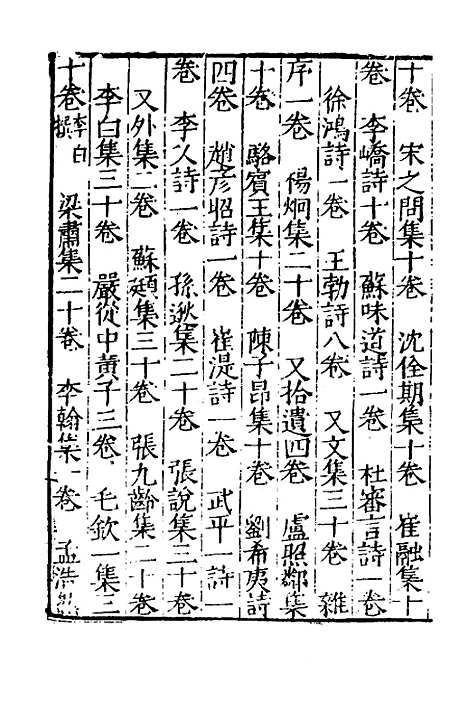 十卷　宋之問集十卷　沈佺期集十卷　崔融集十
卷　李嶠詩十卷　蘇味道詩一卷　杜審言詩一卷
徐鴻詩一卷　王勃詩八卷　又文集三十卷　雜
序一卷　楊烱集二十卷　又拾遺四卷　盧照鄰集
十卷　駱賓王集十卷　陳子昂集十卷　劉希夷詩
四卷　趙彥昭詩一卷　崔湜詩一卷　武平一詩一
卷　李乂詩一卷　孫逖集二十卷　張說集三十卷
又外集二卷　蘇頲集三十卷　張九齡集二十卷
李白集三十卷　嚴從中黃子三卷　毛欽一集三
十卷李白撰　梁肅集二十卷　李翰集一卷　孟浩